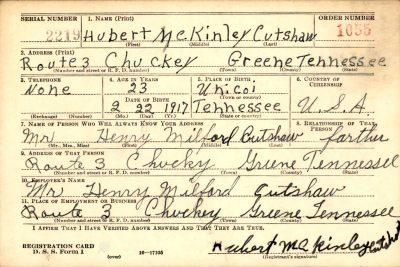 SERIAL NUMBER 1. NAME (Print) ORDER NUMBER
2219 Hubert McKinley Cutshaw 1055
(First) (Middle) (Last)
2. ADDRESS (Print)
Route 3 Chuckey Greene Tennessee
(Number and street or R. F. D. number) (Town) (County) (State)
3. TELEPHONE 4. AGE IN YEARS 5. PLACE OF BIRTH 6. COUNTRY OF CITIZENSHIP
None 23 Unicoi
DATE OF BIRTH (Town or county)
2 22 1917 Tennessee U.S.A.
(Exchange) (Number) (Mo.) (Day) (Yr.) (State or country)
7. NAME OF PERSON WHO WILL ALWAYS KNOW YOUR ADDRESS 8. RELATIONSHIP OF THAT PERSON
Mr. Henry Milford Cutshaw farther
(Mr., Mrs., Miss) (First) (Middle) (Last)
9. ADDRESS OF THAT PERSON
Route 3 Chucky Greene Tennessee
(Number and street or R. F. D. number) (Town) (County) (State)
10. EMPLOYER'S NAME
Mr. Henry Milford Cutshaw
11. PLACE OF EMPLOYMENT OR BUSINESS
Route 3 Chuckey Greene Tennessee
(Number and street or R. F. D. number) (Town) (County) (State)
I AFFIRM THAT I HAVE VERIFIED ABOVE ANSWERS AND THAT THEY ARE TRUE.
REGISTRATION CARD
D. S. S. Form 1 16-17105 Hubert McKinley Cutshaw
(over) (Registrant's signature)